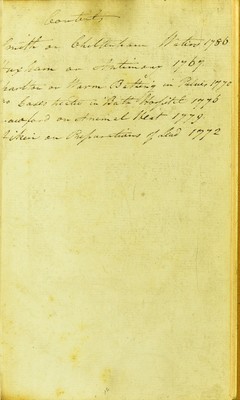 Contents
Smith on Cheltenham Waters 1786
on Antimony 1767
on Warm Bathing in Palsies 1770
Cases in Bath Hospital 1776
on Animal Heat 1779
on Preparations of Lead 1772